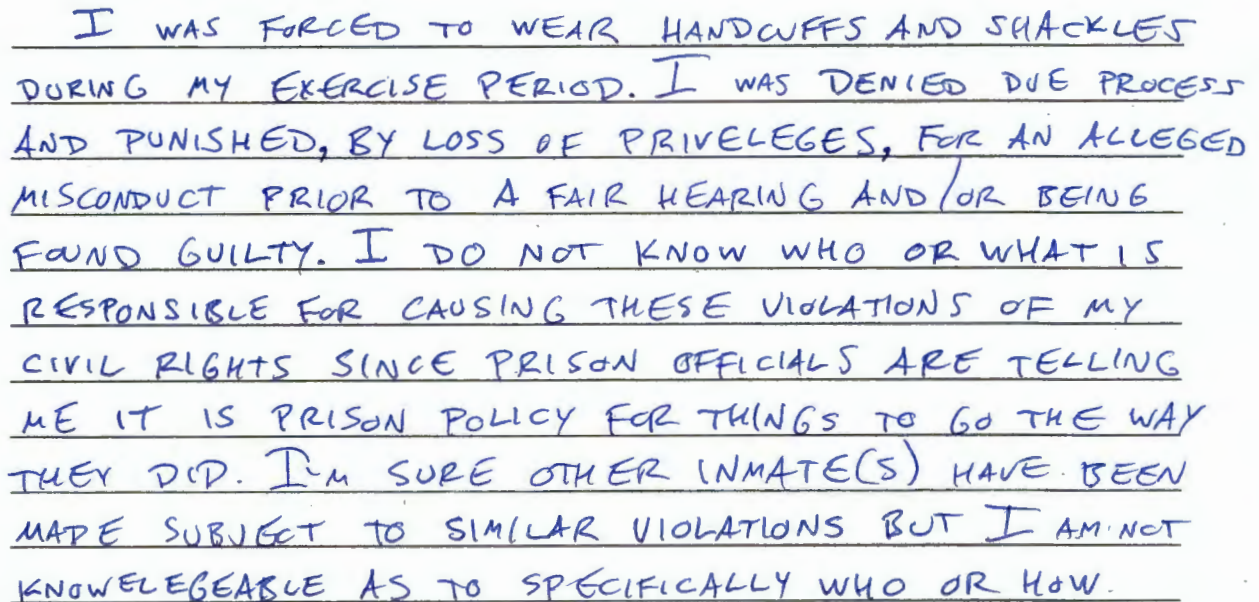 I WAS FORCED TO WEAR HANDCUFFS AND SHACKLES
DURING MY EXERCISE PERIOD. I WAS DENIED DUE PROCESS
AND PUNISHED, BY LOSS OF PRIVELEGES, FOR AN ALLEGED
MISCONDUCT PRIOR TO A FAIR HEARING AND/OR BEING
FOUND GUILTY. I DO NOT KNOW WHO OR WHAT IS
RESPONSIBLE FOR CAUSING THESE VIOLATIONS OF MY
CIVIL RIGHTS SINCE PRISON OFFICIALS ARE TELLING
ME IT IS PRISON POLICY FOR THINGS TO GO THE WAY
THEY DID. I'M SURE OTHER INMATE(S) HAVE BEEN
MADE SUBJECT TO SIMILAR VIOLATIONS BUT I AM NOT
KNOWELEGEABLE AS TO SPECIFICALLY WHO OR HOW.